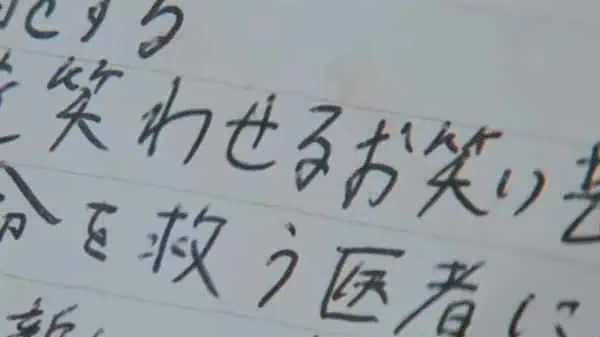 にする
を笑わせるお笑い芸
命を救う医者に
新